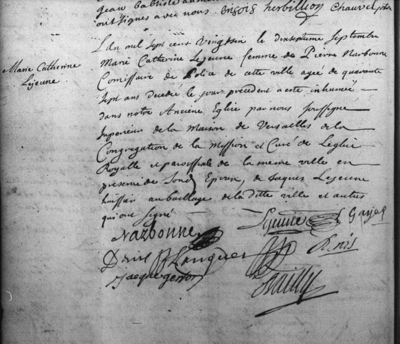 jean Baptiste
ont signés avec nous françois herbillion Chauvel
Marie Catherine
Lejeune
L'an mil sept cens Vingt six le dixseptieme Septembre
Marie Catherine Lejeune femme de Pierre Narbonne
Comissaire de Police de cette ville agée de quarante
Sept ans decedée le jour precedent a esté inhumée
dans notre Ancienne Eglise par nous soussigne
Superieur de la Maison de Versailles de la
Congregation de la Mission et Curé de L'eglise
Royalle et paroissiale de la meme ville en
presence de Epoux, de Jaques Lejeune
huissier au bailliage de la ditte ville et autres
qui ont Signé
Narbonne Lejeune
Jacques
Bailly